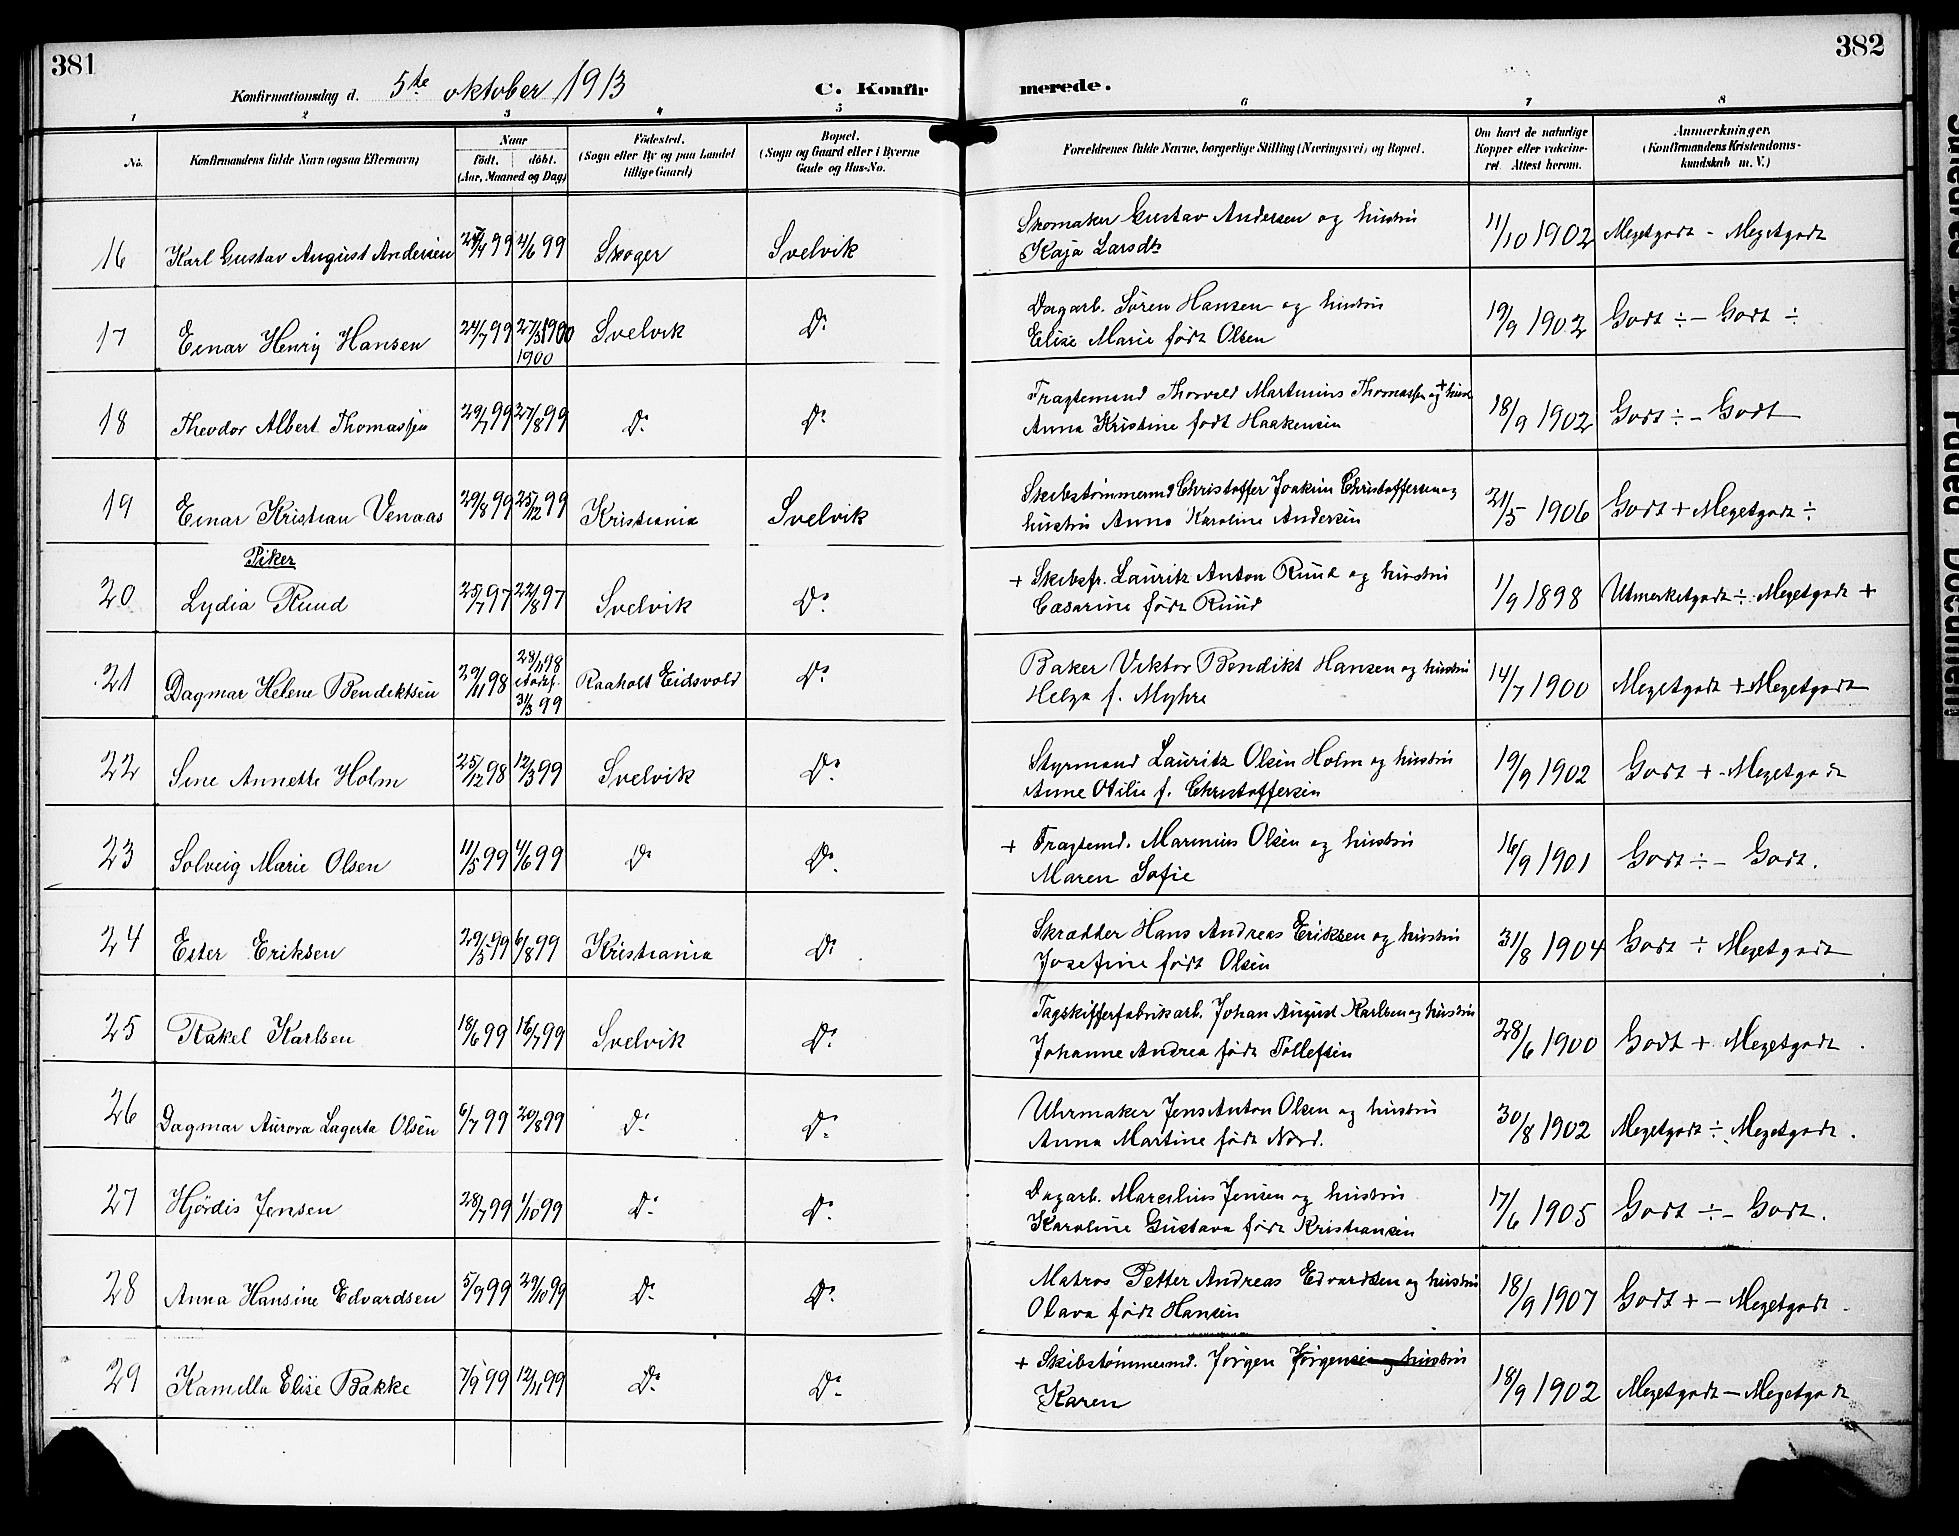 381
382
Konfirmationsdag d. 5te oktober 1913
C. Konfir
merede.
1 2 3 4 5 6 7 8
No. Konfirmandens fulde Navn (ogsaa Efternavn) Naar født. døbt. (Aar, Maaned og Dag) Fødested. (Sogn eller By og paa Landet tillige Gaard) Bopæl. (Sogn og Gaard eller i Byerne Gade og Hus-No. Forældrenes fulde Navne, borgerlige Stilling (Næringsvei) og Bopæl. Om havt de naturlige Kopper eller vaksineret. Attest herom. Anmærkninger. (Konfirmandens Kristendomskundskab m. V.)
16 Karl Gustav August Andersen 4/6 99 Skoger Svelvik Skomaker Gustav Andersen og hustru
Kaja Larsdtr 11/10 1902 Megetgodt - Megetgodt
17 Einar Henry Hansen 24/7 99 1900 Svelvik Do Dagarb. Søren Hansen og hustru
Elise Marie født Olsen 19/9 1902 Godt ÷ - Godt ÷
18 Theodor Albert Thomassen 29/7 99 27/8 99 Do Do Fragtemand Thorvald Martinius Thomassen og + hustru
Anna Kristine født Haakensen 18/9 1902 Godt ÷ - Godt
19 Einar Kristian Venaas 29/8 99 25/12 99 Kristiania Svelvik Skibstømmermd Christoffer Joakim Christoffersen og
hustru Anna Karoline Andersen 21/5 1906 Godt + Megetgodt ÷
Piker
20 Lydia Ruud 25/7 97 22/8 97 Svelvik Do + Skibsfr. Lauritz Anton Ruud og hustru
Casarine født Ruud 1/9 1898 Utmerketgodt ÷ Megetgodt +
21 Dagmar Helene Bendiktsen 29/11 98 31/3 99 Raaholt Eidsvold Do Baker Viktor Bendikt Hansen og hustru
Helga f. Myhre 14/7 1900 Megetgodt + Megetgodt
22 Sine Annette Holm 25/12 98 12/3 99 Svelvik Do Styrmand Lauritz Olsen Holm og hustru
Anne Otilie f. Christoffersen 19/9 1902 Godt + - Megetgodt
23 Solveig Marie Olsen 11/5 99 4/6 99 Do Do + Fragtemd. Marinius Olsen og hustru
Maren Sofie 16/9 1901 Godt ÷ - Godt.
24 Ester Eriksen 29/5 99 6/8 99 Kristiania Do Skrædder Hans Andreas Eriksen og hustru
Josefine født Olsen 31/8 1904 Godt ÷ Megetgodt
25 Rakel Karlsen 18/6 99 16/7 99 Svelvik Do Tagskifferfabrikarb. Johan August Karlsen og hustru
Johanne Andrea født Tollefsen 28/6 1900 Godt + Megetgodt.
26 Dagmar Aurora Lagerta Olsen 6/7 99 20/8 99 Do Do Uhrmaker Jens Anton Olsen og hustru
Anna Martine født Nord. 30/8 1902 Megetgodt ÷ Megetgodt.
27 Hjørdis Jensen 28/7 99 1/10 99 Do Do Dagarb. Marcilius Jensen og hustru
Karoline Gustava født Kristiansen 17/6 1905 Godt ÷ - Godt.
28 Anna Hansine Edvardsen 5/9 99 29/10 99 Do Do Matros Petter Andreas Edvardsen og hustru
Olava født Hansen 18/9 1907 Godt + - Megetgodt.
29 Kamilla Elise Bakke 7/9 99 12/11 99 Do Do + Skibstømmermd. Jørgen Jørgensen og hustru
Karen 18/9 1902 Megetgodt - Megetgodt
Faded Document